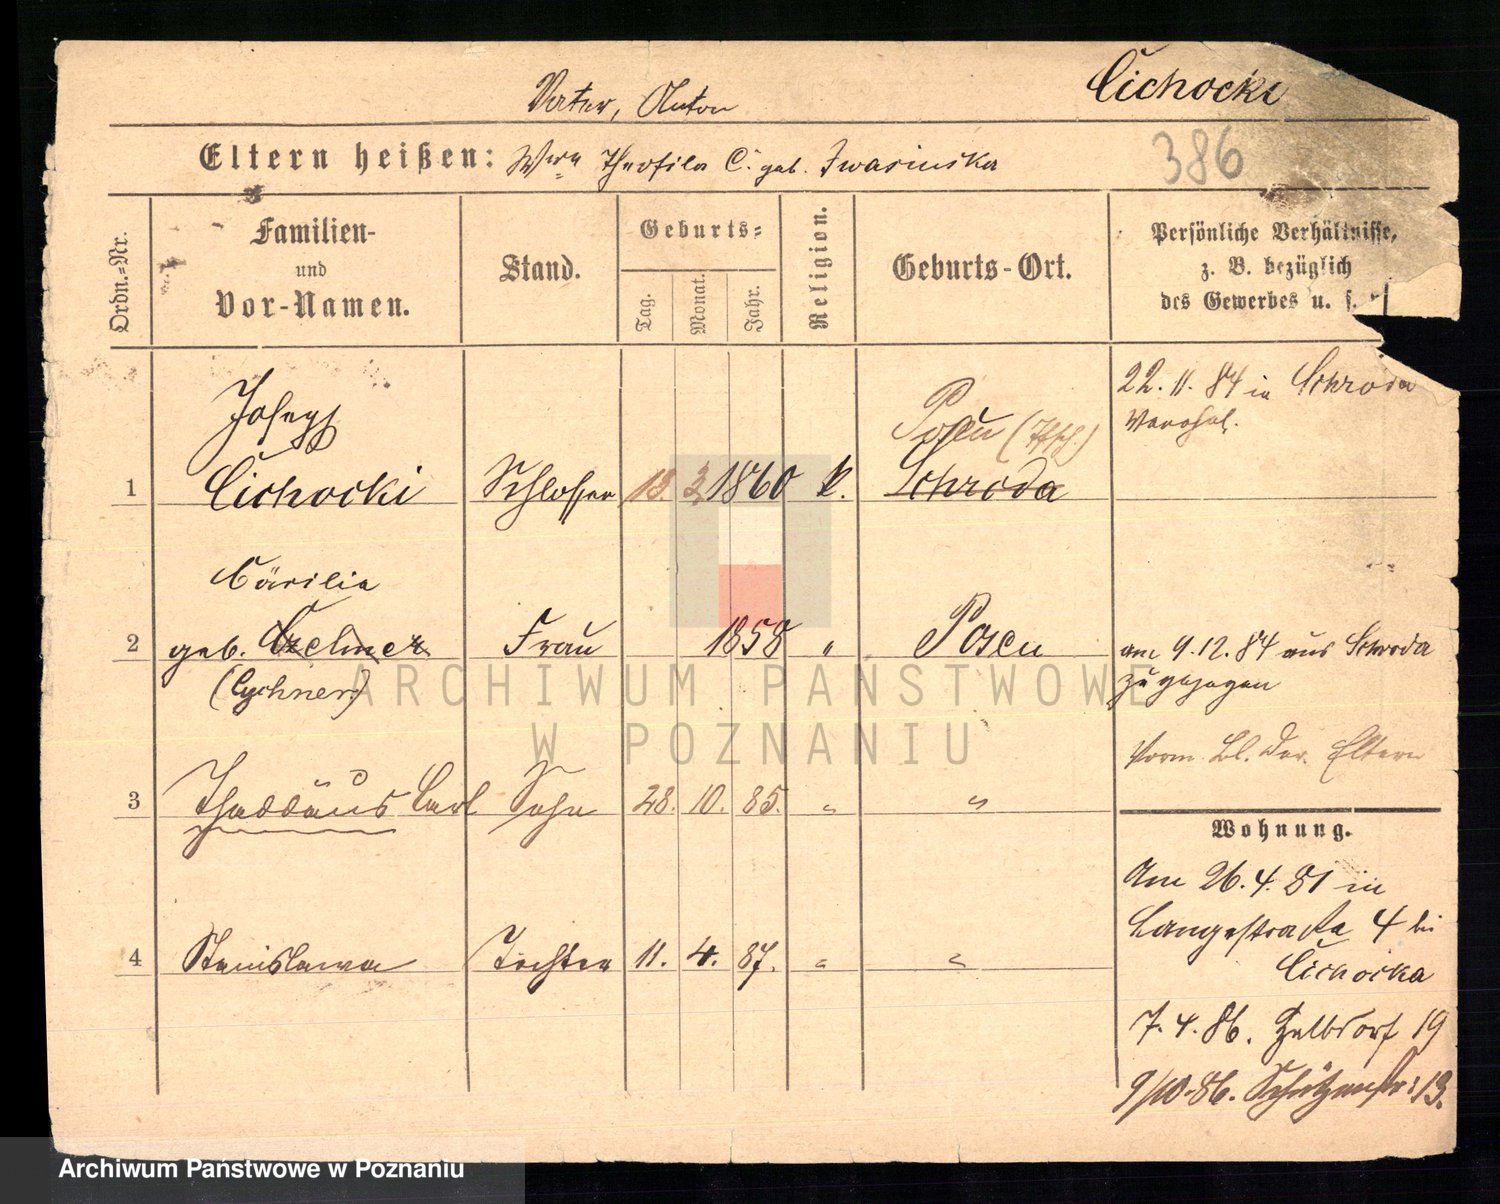 Cichocki
Vater, Anton
386
Eltern heißen: Wwe Theofila C. geb. Iwasinska
Ordn.=Nr.
Familien-
und
Vor-Namen.
Stand.
Geburts=
Tag.
Monat.
Jahr.
Religion.
Geburts-Ort.
Persönliche Verhältnisse,
z. B. bezüglich
des Gewerbes u. s.
Joseph
1 Cichocki Schlosser 18. 3. 1860 k. Schroda
Posen
22. 11. 84 in Schroda
Verehel.
Cäcilia
2 geb. Frau 1858 " Posen
(Cychner)
am 9.12.84 aus Schroda
zugezogen
3 Thaddäus Carl Sohn 28. 10. 85. " "
Bl. der Eltern
Wohnung.
4 Stanislawa Tochter 11. 4. 87. " "
Am 26.4.81 in
Langestraße 4 bei
Cichocka
7.4.86. Halbdorf 19
9/10.86. Schützenstr: 13.
ARCHIWUM PAŃSTWOWE
W POZNANIU
Archiwum Państwowe w Poznaniu